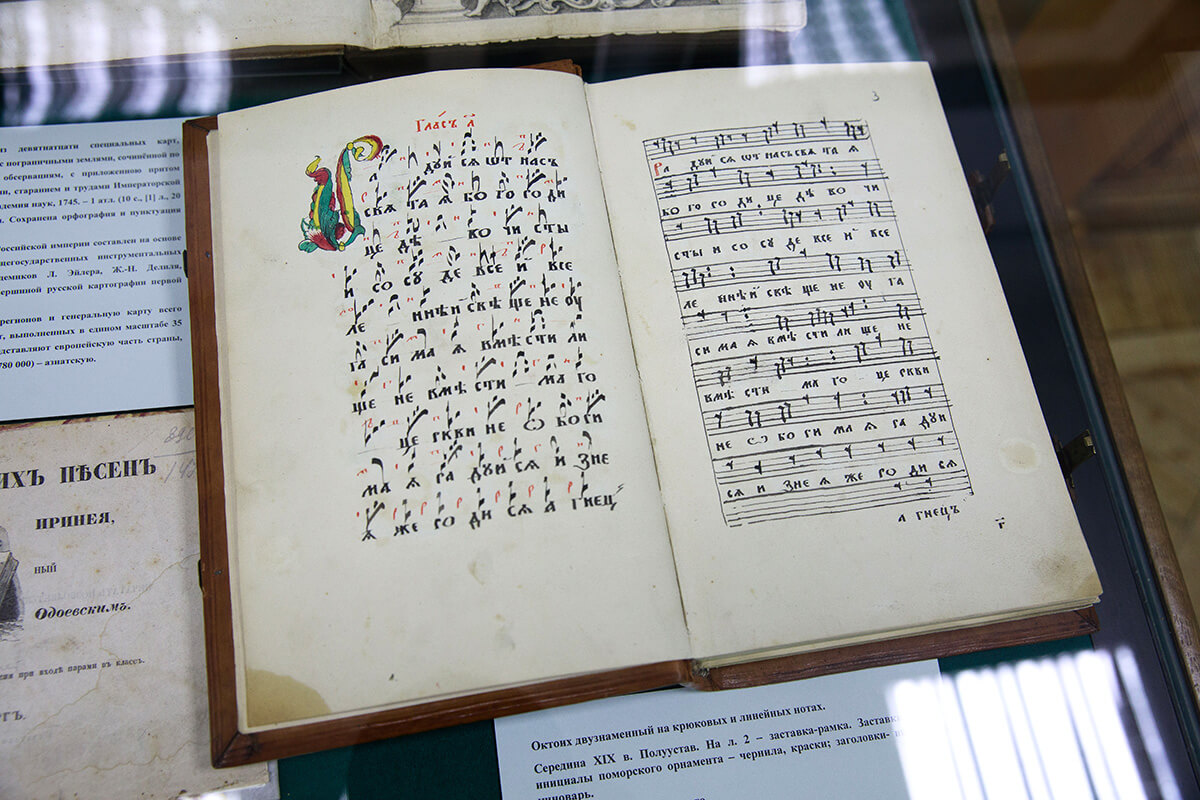 из девятнадцати специальных карт,
с пограничными землями, сочинённой по
обсервациям, с приложенною притом
старанием и трудами Императорской
наук, 1745. – 1 атл. (10 с., [1] л., 20
Сохранена орфография и пунктуация
Российской империи составлен на основе
инструментальных
Л. Эйлера, Ж.-Н. Делиля,
вершиной русской картографии первой
регионов и генеральную карту всего
выполненных в едином масштабе 35
европейскую часть страны,
780 000) – азиатскую.
ИХЪ ПѢСЕНЪ
ИРИНЕЯ,
ный
Одоевскимъ.
при входѣ парами въ классъ.
Гласъ а҃
Ра дуи сѧ ѡт насъ
свѧ та ѧ бо го ро ди
це дѣ во чи сты
и со су де все и все
ле ннѣи свѣ ще не оу
га си ма ѧ вмѣ сти ли
ще не вмѣ сти ма го
це ркви не ѡ бо ри
ма ѧ ра дуи сѧ и зне
ѧ же ро ди сѧ а гнец
3
Ра дуи сѧ ѡт насъ свѧ та ѧ
бо го ро ди це дѣ во чи
сты и со су де все и все
ле ннѣи свѣ ще не оу га
си ма ѧ вмѣ сти ли ще не
вмѣ сти ма го це ркви
не ѡ бо ри ма ѧ ра дуи
сѧ и зне ѧ же ро ди сѧ
а гнецъ
г҃
Октоих двузнаменный на крюковых и линейных нотах.
Середина XIX в. Полуустав. На л. 2 – заставка-рамка.
инициалы поморского орнамента – чернила, краски; заголовки-
киноварь.